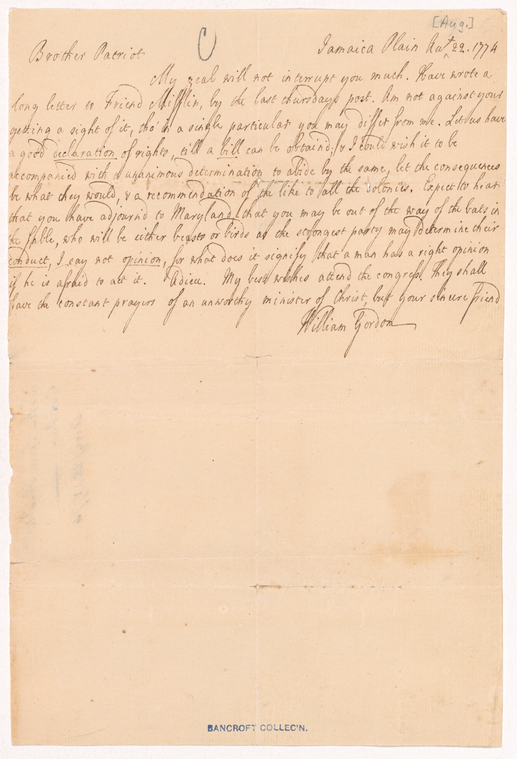 [Aug.]
Brother Patriot Jamaica Plain Au.st 22. 1774
My zeal will not interrupt you much. Have wrote a
long letter to Friend Mifflin, by the last thursdays post. Am not against your
getting a sight of it, tho' in a single particular you may differ from me. Let us have
a good declaration of rights, till a bill can be obtaind, & I could wish it to be
accompanied with a unanimous determination to abide by the same, let the consequences
be what they would, & a recommendation of the like to all the colonies. Expect to hear
that you have adjournd to Maryland, that you may be out of the way of the bats in
the fable, who will be either beasts or birds as the strongest party may determine their
conduct, I say not opinion, for what does it signify that a man has a right opinion
if he is afraid to act it. Adieu. My best wishes attend the congress. They shall
have the constant prayers of an unworthy minister of Christ, but your sincere Friend
William Gordon
BANCROFT COLLEC'N.